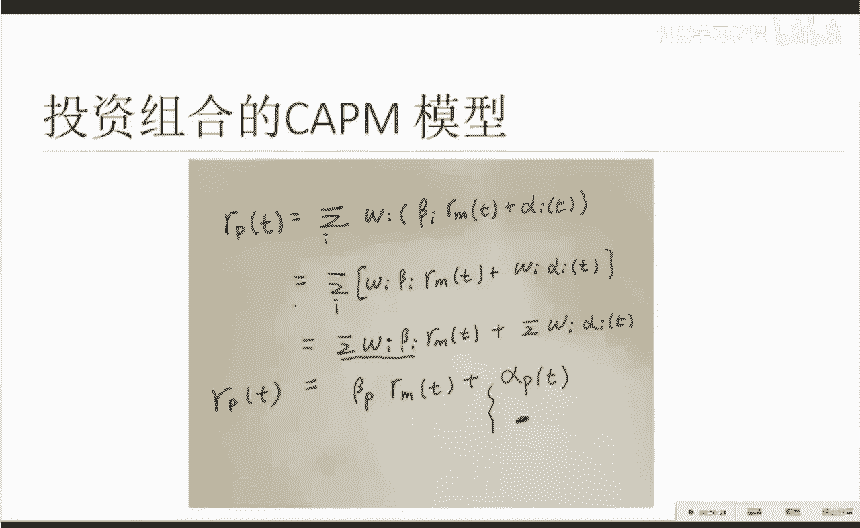 投资组合的CAPM 模型
rₚ(t) = Σᵢ wᵢ ( βᵢ rₘ(t) + αᵢ(t) )
= Σᵢ [ wᵢ βᵢ rₘ(t) + wᵢ αᵢ(t) ]
= Σ wᵢ βᵢ rₘ(t) + Σ wᵢ αᵢ(t)
rₚ(t) = βₚ rₘ(t) + αₚ(t)